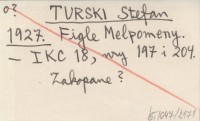 o?
TURSKI Stefan
1927. Figle Melpomeny.
– IKC 18, nry 197 i 204.
Zakopane?